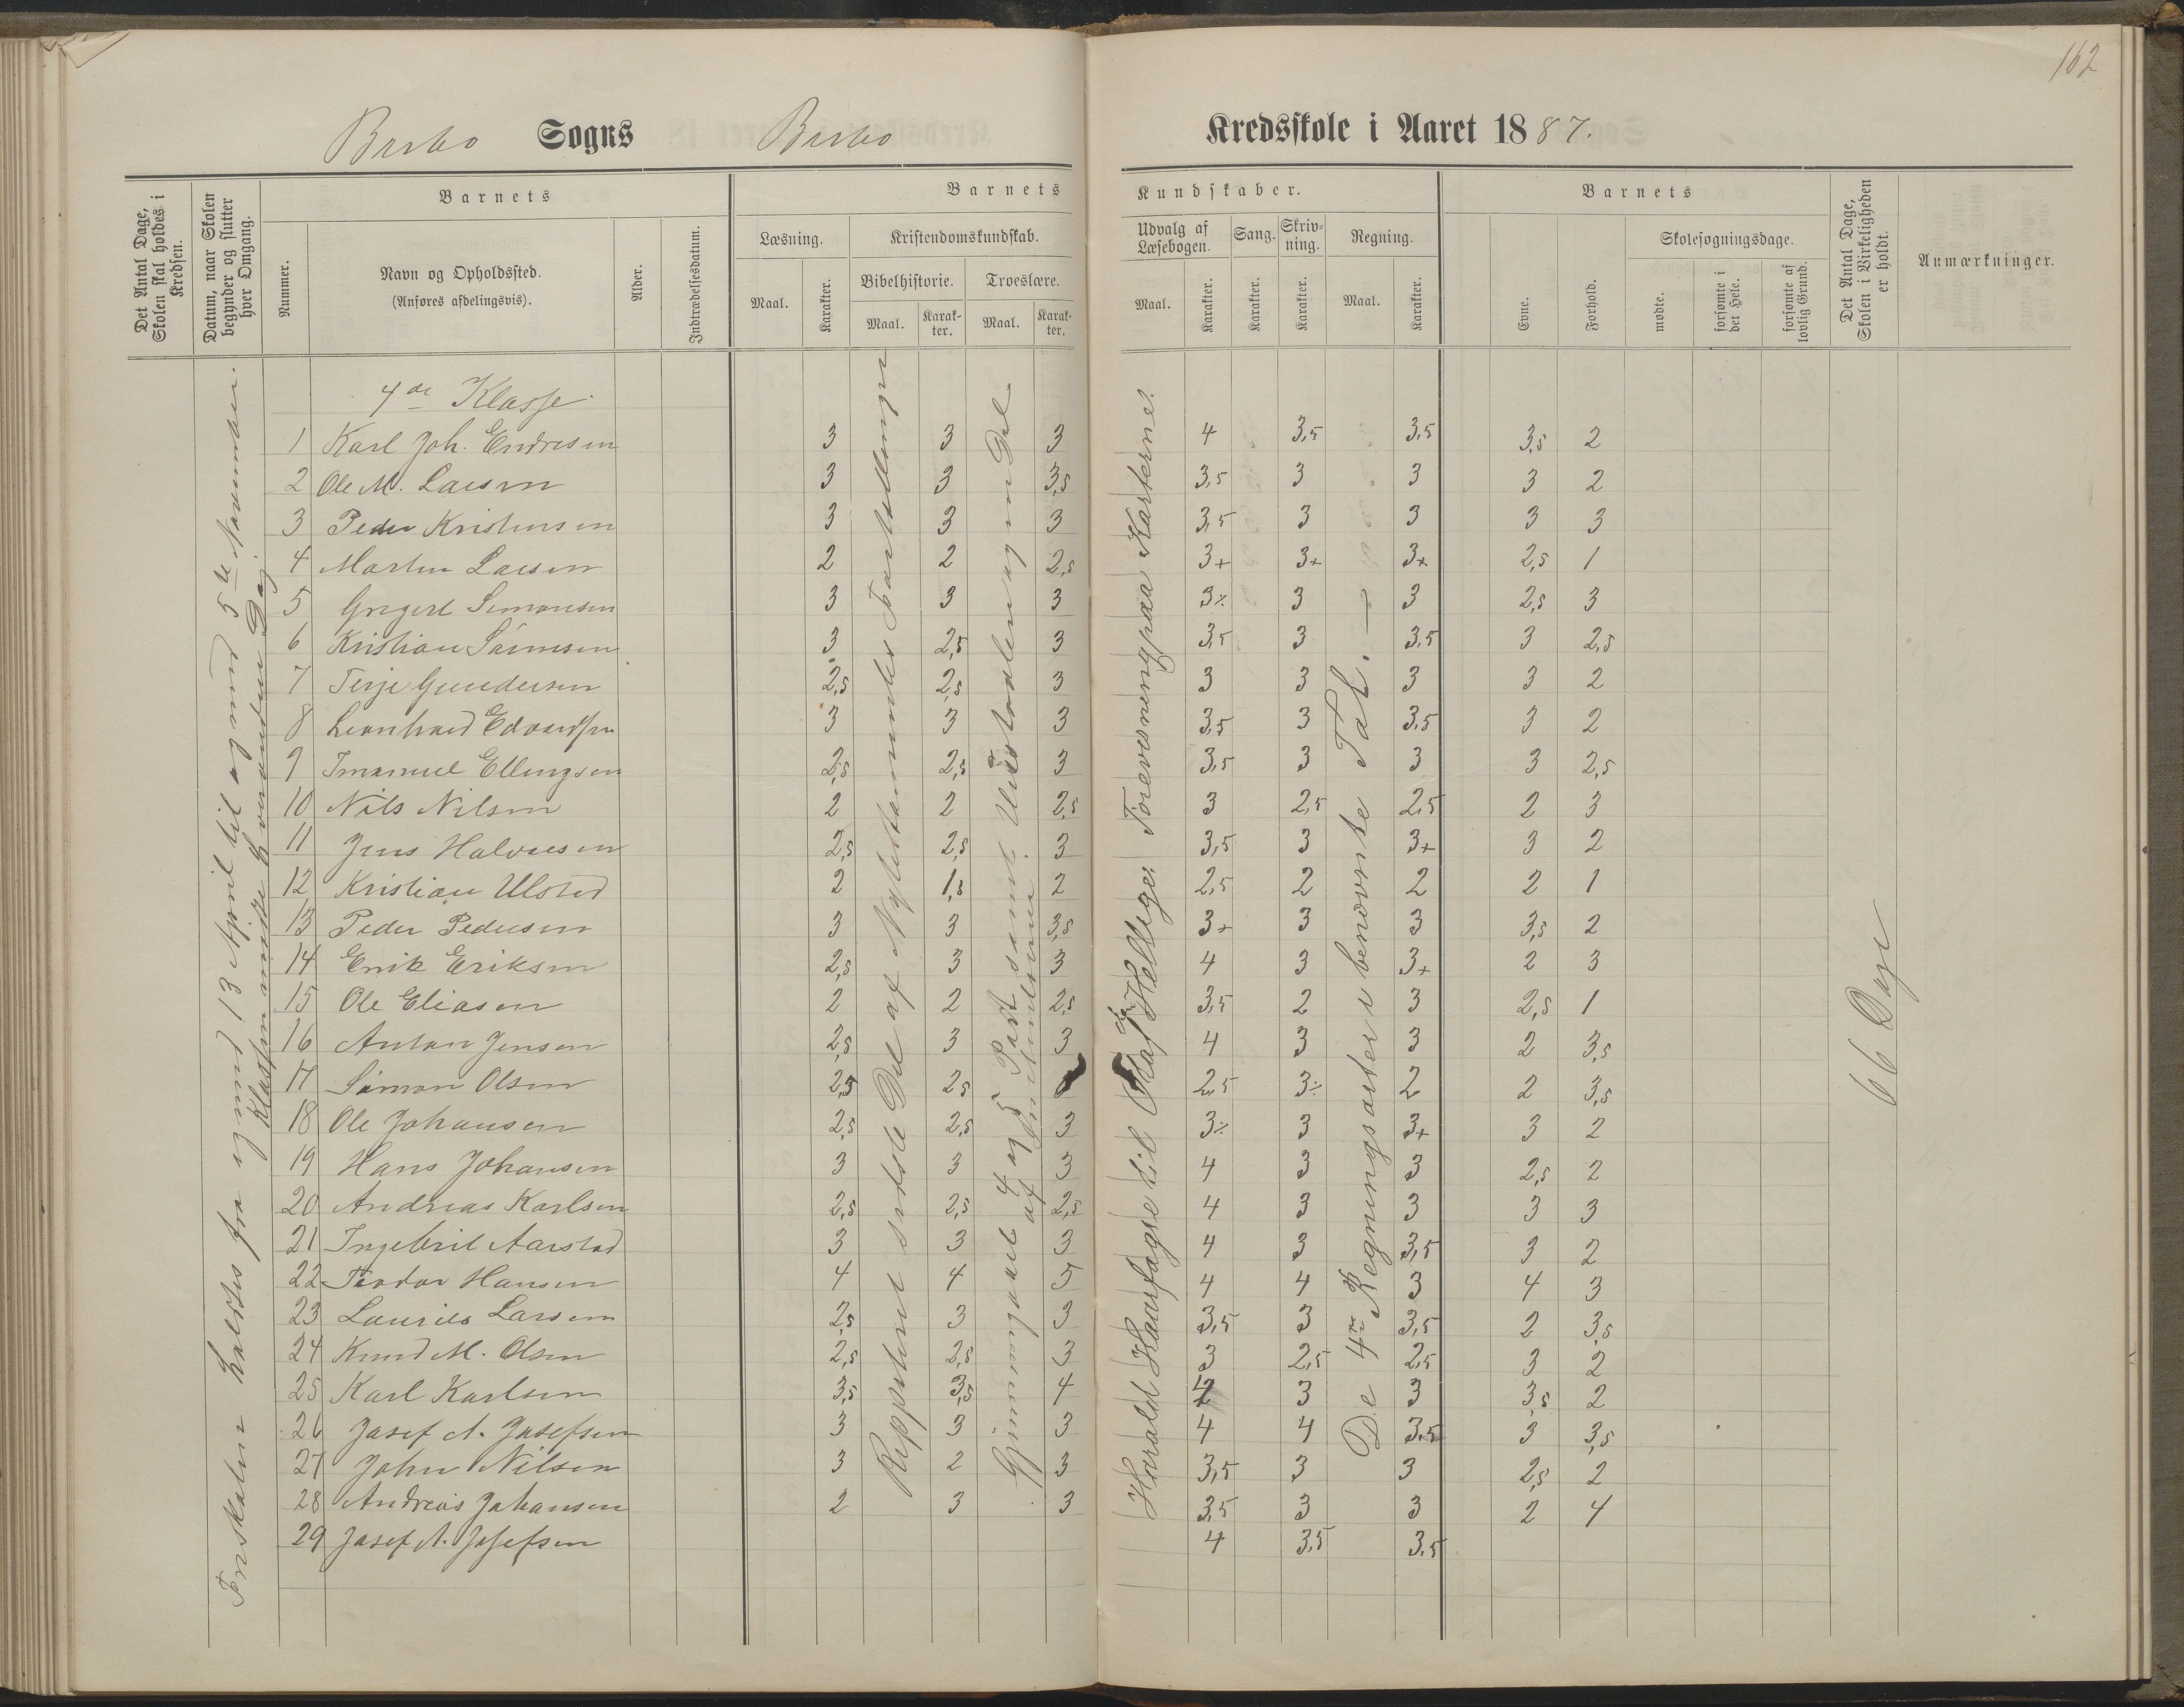 162
Barbo Sogns Barbo Kredsskole i Aaret 1887.
Det Antal Dage, Skolen skal holdes i Kredsen.
Datum, naar Skolen begynder og slutter hver Omgang.
Barnets
Nummer.
Navn og Opholdssted.
(Anføres afdelingsvis).
Alder.
Indtrædelsesdatum.
Barnets Kundskaber.
Læsning.
Maal.
Karakter.
Kristendomskundskab.
Bibelhistorie.
Maal.
Karakter.
Troeslære.
Maal.
Karakter.
Udvalg af Læsebogen.
Maal.
Karakter.
Sang.
Karakter.
Skrivning.
Karakter.
Regning.
Maal.
Karakter.
Barnets
Evne.
Forhold.
Skolesøgningsdage.
mødte.
forsømte i det Hele.
forsømte af lovlig Grund.
Det Antal Dage, Skolen i Virkeligheden er holdt.
Anmærkninger.
fra og med 13 April til og med 5te November.
Klassen hveranden Dag
4de Klasse.
1 Karl Joh. Endresen 3 3 3 4 3,5 3,5 3,5 2
2 Ole M. Larsen 3 3 3,5 3,5 3 3 3 2
3 Peder Kristensen 3 3 3 3,5 3 3 3 3
4 Martin Larsen 2 2 2,5 3+ 3+ 3+ 2,5 1
5 Gregert Simonsen 3 3 3 3÷ 3 3 2,5 3
6 Kristian Sørensen 3 2,5 3 3,5 3 3,5 3 2,5
7 Terje Gundersen 2,5 2,5 3 3 3 3 3 2
8 Leonhard Edvardsen 3 3 3 3,5 3 3,5 3 2
9 Imanuel Ellingsen 2,5 2,5 3 3,5 3 3 3 2,5
10 Nils Nilsen 2 2 2,5 3 2,5 2,5 2 3
11 Jens Halvorsen 2,5 2,5 3 3,5 3 3+ 3 2
12 Kristian Ulsted 2 1,5 2 2,5 2 2 2 1
13 Peder Pedersen 3 3 3,5 3+ 3 3 3,5 2
14 Erik Eriksen 2,5 3 3 4 3 3+ 2 3
15 Ole Eliasen 2 2 2,5 3,5 2 3 2,5 1
16 Anton Jensen 2,5 3 3 4 3 3 2 3,5
17 Simon Olsen 2,5 2,5 2,5 3÷ 2 2 3,5
18 Ole Johansen 2,5 2,5 3 3÷ 3 3+ 3 2
19 Hans Johansen 3 3 3 4 3 3 2,5 2
20 Andreas Karlsen 2,5 2,5 2,5 4 3 3 3 3
21 Ingebret Aarstad 3 3 3 4 3 3,5 3 2
22 Teodor Hansen 4 4 5 4 4 3 4 3
23 Laurits Larsen 2,5 3 3 3,5 3 3,5 2 3,5
24 Knud M. Olsen 2,5 2,5 3 3 2,5 2,5 3 2
25 Karl Karlsen 3,5 3,5 4 4 3 3 3,5 2
26 Josef A. Josefsen 3 3 3 4 4 3,5 3 3,5
27 John Nilsen 3 2 3 3,5 3 3 2,5 2
28 Andreas Johansen 2 3 3 3,5 3 3 2 4
29 Josef A. Josefsen 4 3,5 3,5
Reppeteret sidste Del af Nytestamentes Fortællinger
Gjennemgaaet 4 og 5 Part samt
Harald Haarfagre til Olaf den Hellige. Foreviisning paa Karterne.
De 4re Regningsarter i benævnte Tal. —
66 Dage